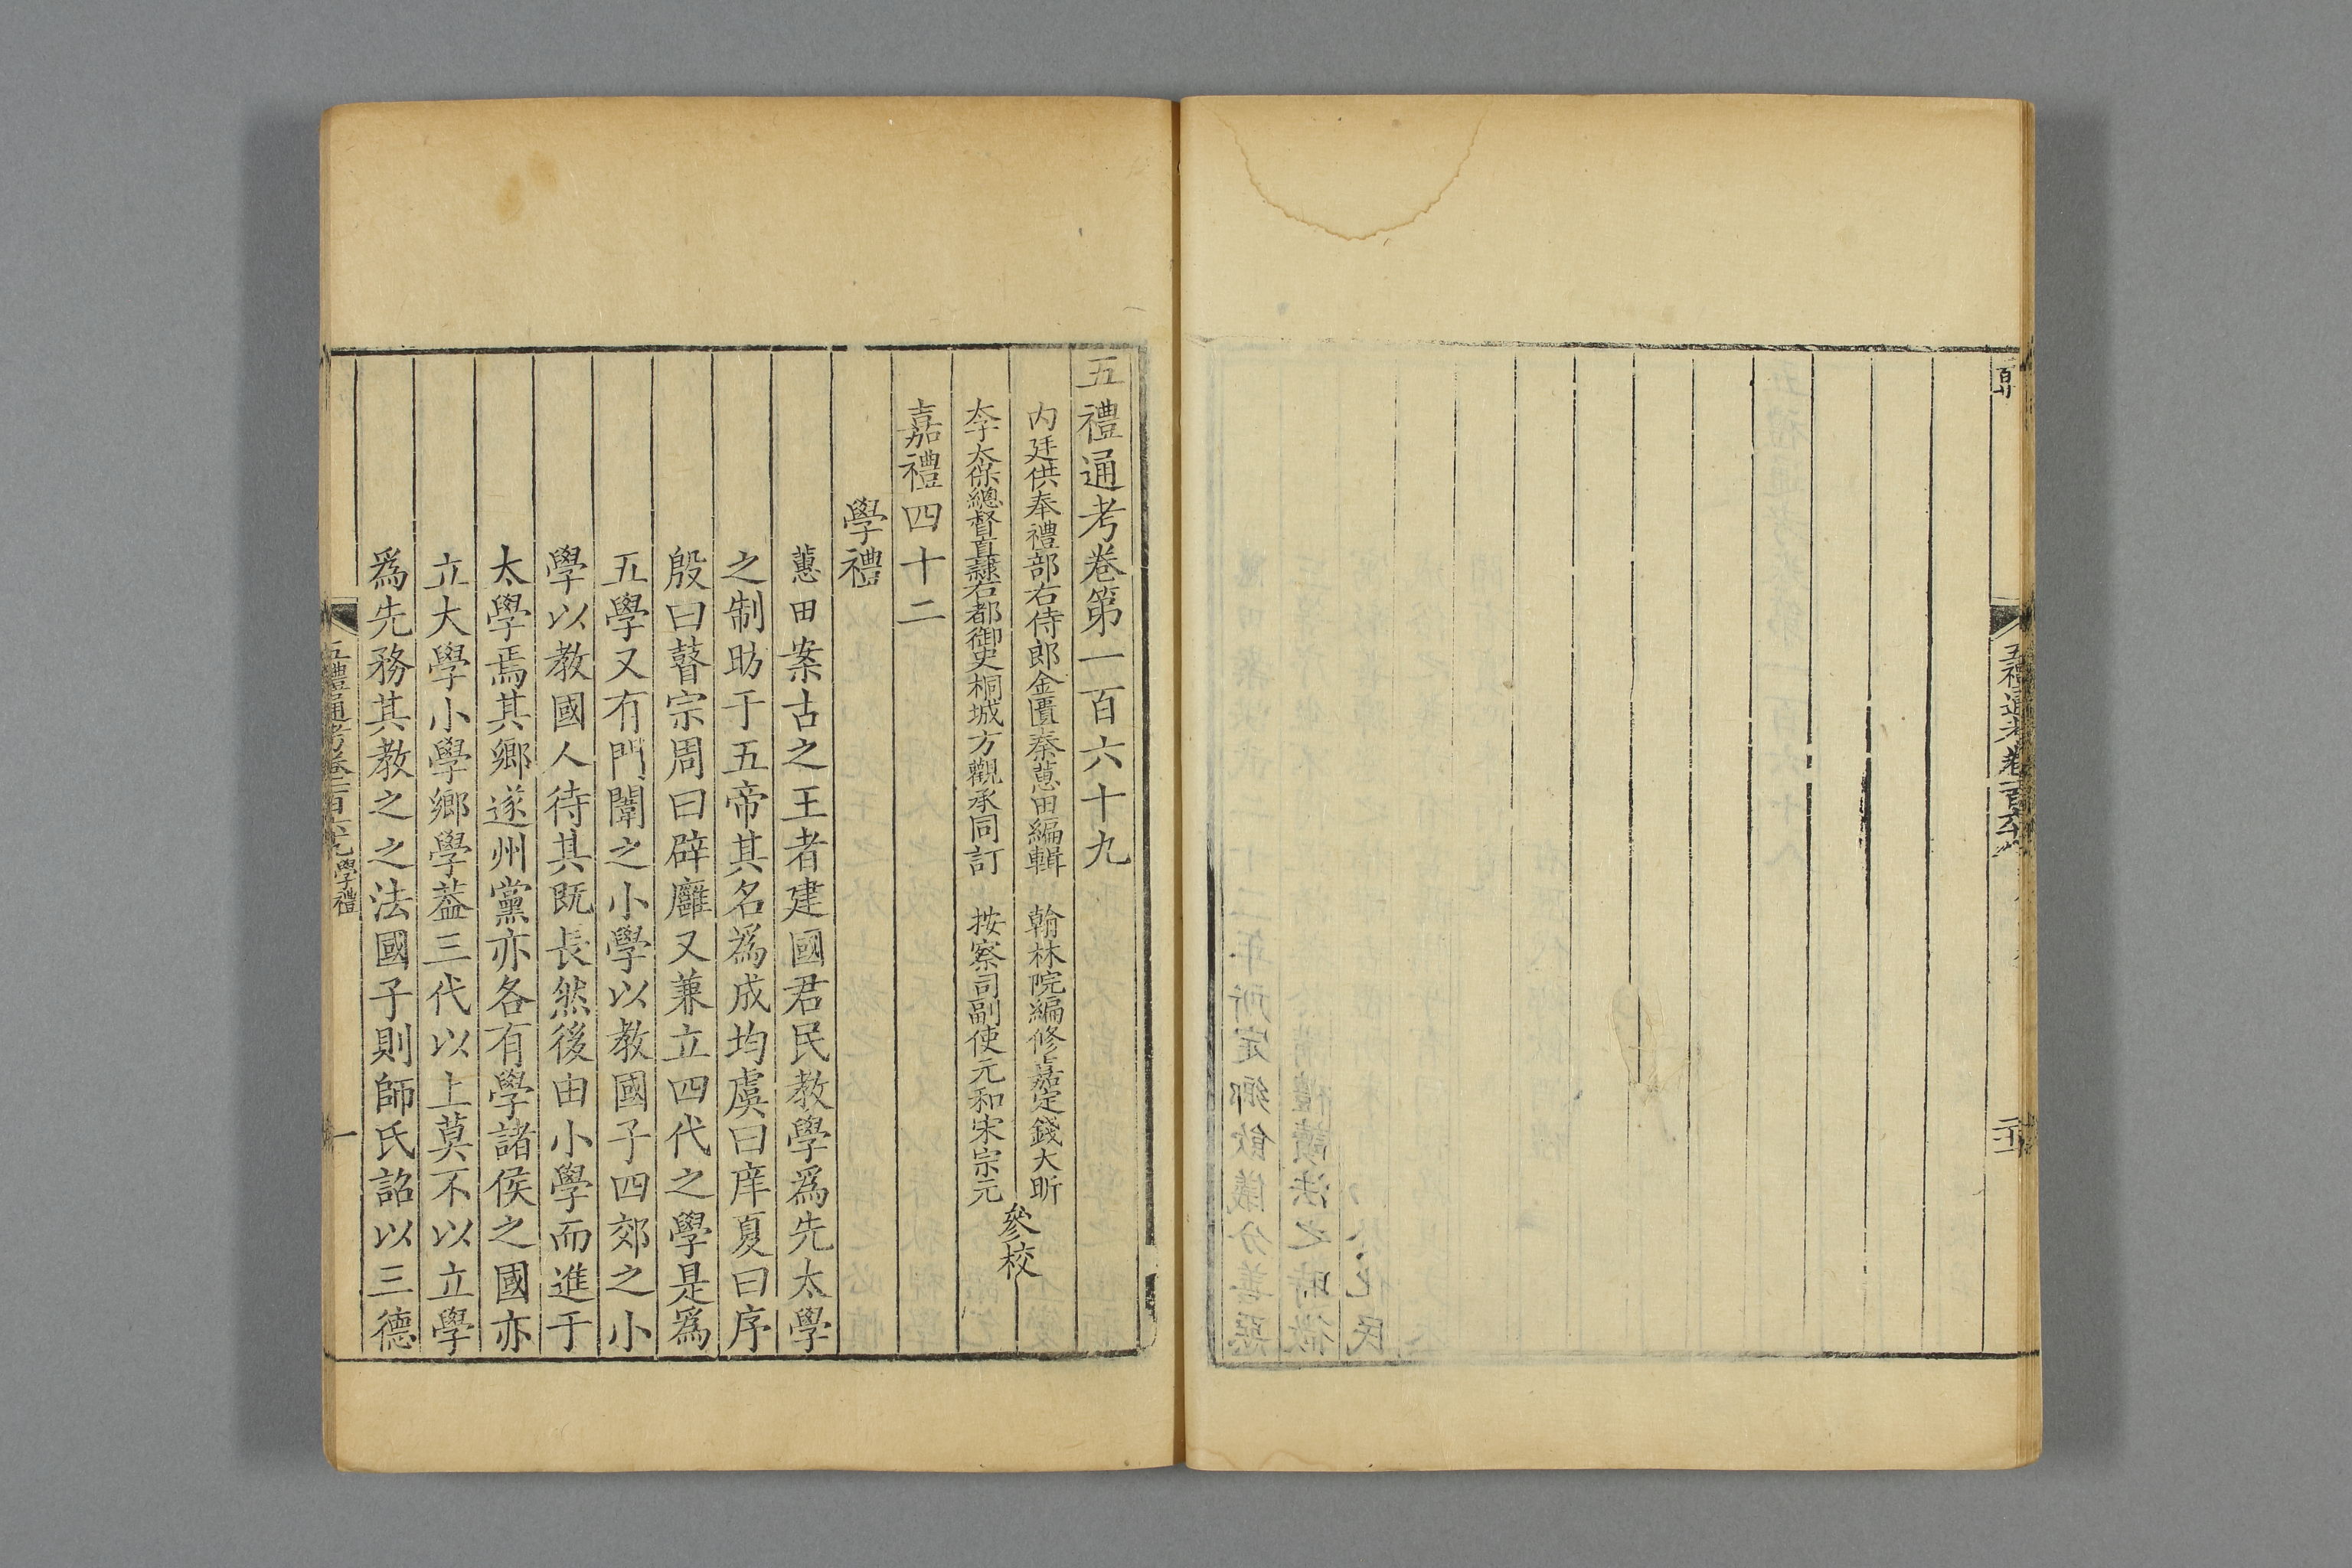 五禮通考卷一百六
五禮通考卷第一百六十九
内廷供奉禮部右侍郎金匱秦蕙田編輯 翰林院編修嘉定錢大昕
太保總督直隸右都御史桐城方觀承同訂 按察司副使元和宋宗元
參校
嘉禮四十二
學禮
蕙田案古之王者建國君民教學爲先太學
之制昉于五帝其名爲成均虞曰庠夏曰序
殷曰瞽宗周曰辟廱又兼立四代之學是爲
五學又有門闈之小學以教國子四郊之小
學以教國人待其既長然後由小學而進于
太學焉其鄉遂州黨亦各有學諸侯之國亦
立大學小學鄉學葢三代以上莫不以立學
爲先務其教之之法國子則師氏詔以三德
五禮通考卷一百六九 學禮
一